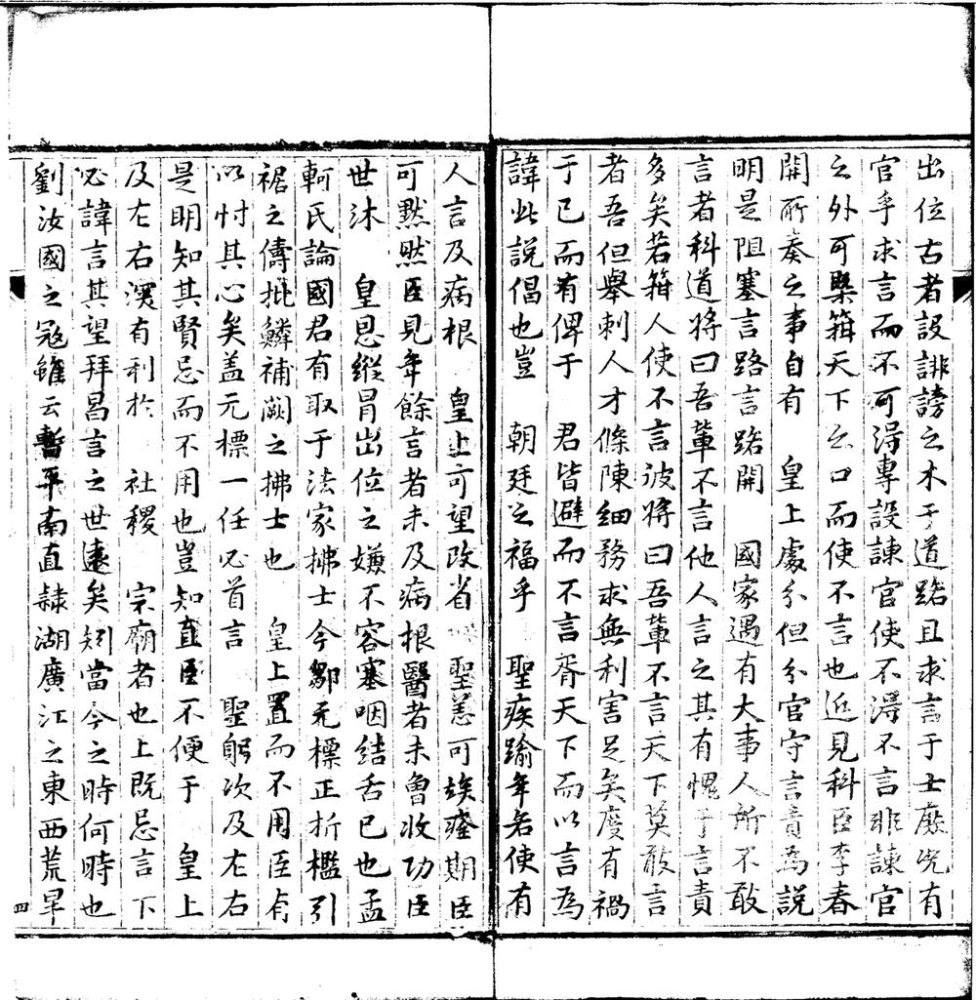 出位古者設誹謗之木于道路且求言于士庶况有
官乎求言而不可淂專設諌官使不淂不言非諌官
之外可槩箝天下之口而使不言也近見科臣李春
開所奏之事自有　皇上處分但分官守言責為説
明是阻塞言路言路開　國家遇有大事人所不敢
言者科道将曰吾軰不言他人言之其有愧于言責
多矣若箝人使不言彼將曰吾軰不言天下莫敢言
者吾但舉刺人才條陳細務求無利害足矣度有禍
于已而有俾于　君皆避而不言胥天下而以言為
諱此説倡也豈　朝廷之福乎　聖疾踰年若使有
人言及病根　皇上可望改省　聖恙可竢瘥期臣
可黙黙臣見年餘言者未及病根醫者未魯收功臣
世沐　皇恩縱冐出位之嫌不容塞咽結舌已也孟
軻氏論國君有取于法家拂士今鄒元標正折檻引
裾之儔批鱗補闕之拂士也　皇上置而不用臣有
以忖其心矣盖元標一任必首言　聖躬次及左右
是明知其賢忌而不用也豈知直臣不便于　皇上
及左右𭰹有利於　社稷　宗廟者也上既忌言下
必諱言其望拜昌言之世逺矣矧當今之時何時也
劉汝國之冦雖云暫平南直隷湖廣江之東西荒旱
四